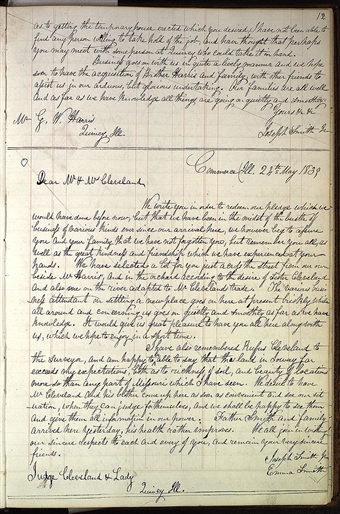 12
as to getting the temporary house erected which you desired, I have not been able to
find any person willing to take hold of the job, and have thought that perhaps
you may meet with some person at Quincy who could take it in hand.
Business goes on with us in quite a lively manner and we hope
soon to have the acquisition of Brother Harris and family, with other friends to
assist us in our arduous, but glorious undertaking. Our families are all well
and as far as we have knowledge all things are going on quietly and smoothly
Yours &c &c
Mr G. W. Harris
Quincy, Ill.
Joseph Smith Jr
Commerce Ill. 24th May 1839
Dear Mr & Mrs Cleveland
We write you in order to redeem our pledge which we
would have done before now, but that we have been in the midst of the bustle of
business of various kinds ever since our arrival here, we however beg to assure
you and your family that we have not forgotten you, but remember you all, as
well as the great kindness and friendship which we have experienced at your
hands. We have selected a lot for you just across the street from our own
beside Mr Harris, and in the orchard according to the desire of Sister Cleveland
and also one on the river adapted to Mr Cleveland's trade. The various
business attendant on settling a new place goes on here at present briskly, while
all around and concerning us goes on quietly and smoothly as far as we have
knowledge. It would give us great pleasure to have you all here along with
us, which we hope to enjoy in a short time.
I have also remembered Rufus Cleveland to
the Surveyor, and am happy to be able to say that the land in Iowa far
exceeds my expectations, both as to richness of soil, and beauty of location
more so than any part of Missouri which I have seen. We desire to have
Mr Cleveland and his brother come up here as soon as convenient and see our
situation, when they can judge for themselves, and we shall be happy to see them
and give them all information in our power. Father Smith and family
arrived here yesterday, his health rather improves. We all join in sending
our sincere respects to each and every of you, and remain your very sincere
friends.
Joseph Smith Jr
Emma Smith
Judge Cleveland & Lady
Quincy Ill.